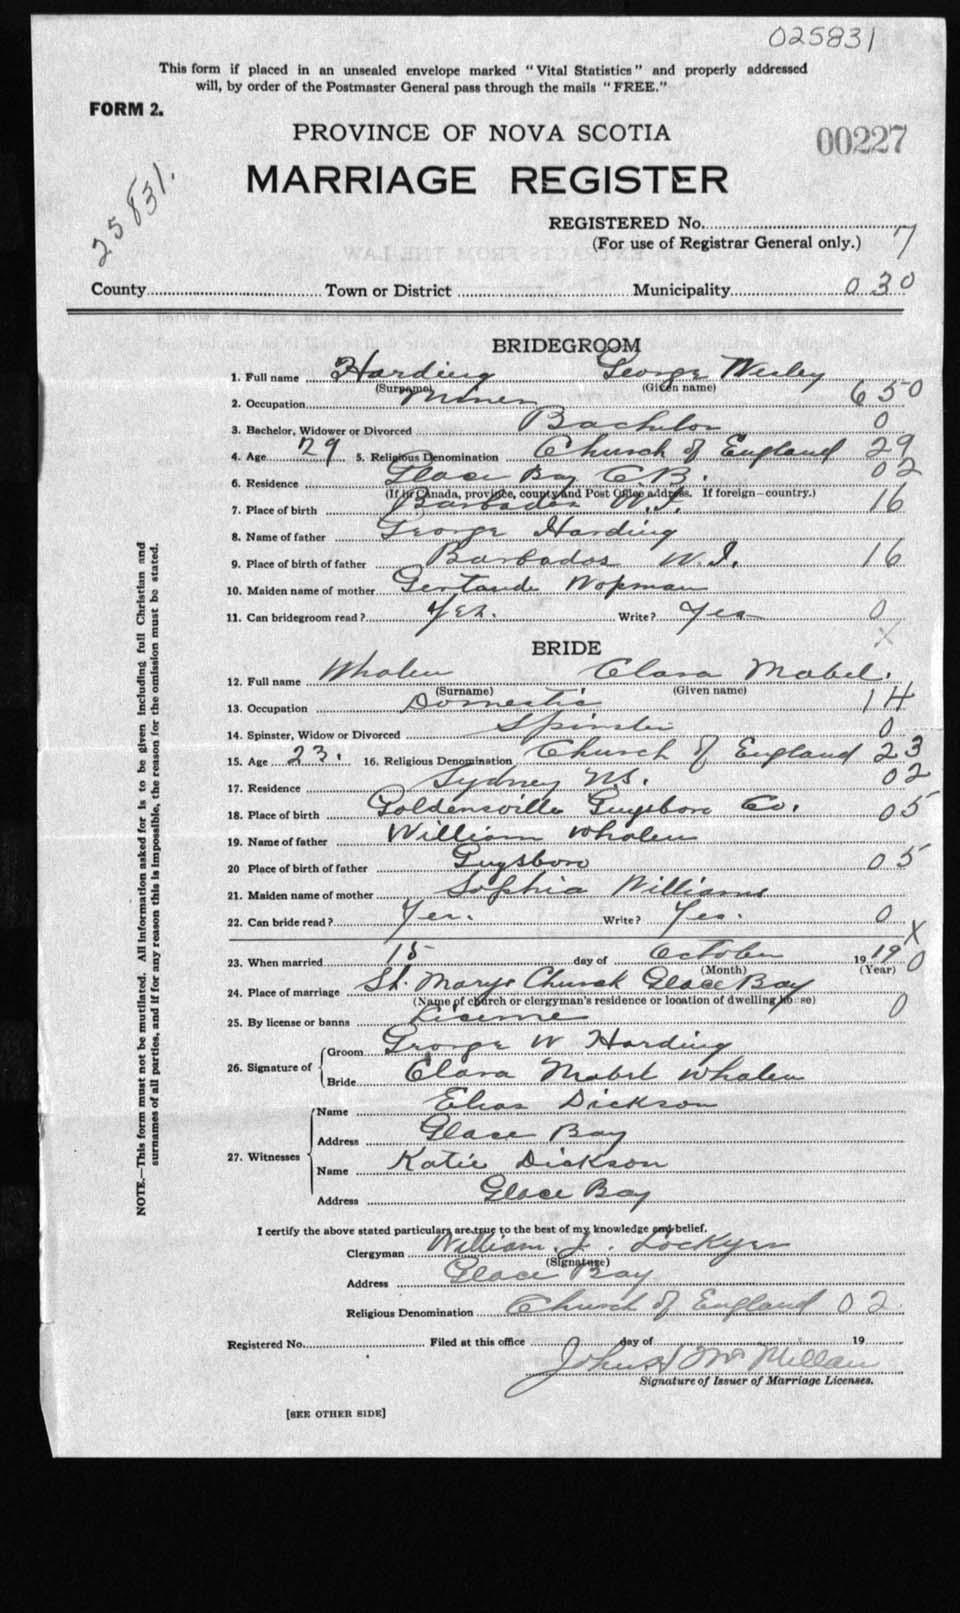 025831
This form if placed in an unsealed envelope marked "Vital Statistics" and properly addressed
will, by order of the Postmaster General pass through the mails "FREE."
FORM 2.
PROVINCE OF NOVA SCOTIA
00227
MARRIAGE REGISTER
25831.
REGISTERED No. 7
(For use of Registrar General only.)
County Town or District Municipality 030
BRIDEGROOM
1. Full name Harding George Wesley
(Surname) (Given name)
2. Occupation Miner 650
3. Bachelor, Widower or Divorced Bachelor 0
4. Age 29 5. Religious Denomination Church of England 29
6. Residence Glace Bay C.B. 02
(If in Canada, province, county and Post Office address. If foreign—country.)
7. Place of birth Barbados W.I. 16
8. Name of father George Harding
9. Place of birth of father Barbados W.I. 16
10. Maiden name of mother Gertrude
11. Can bridegroom read? Yes. Write? Yes 0
X
BRIDE
12. Full name Whalen Clara Mabel.
(Surname) (Given name)
13. Occupation Domestic 14
14. Spinster, Widow or Divorced Spinster 0
15. Age 23. 16. Religious Denomination Church of England 23
17. Residence Sydney NS. 02
18. Place of birth Goldensville Guysboro Co. 05
19. Name of father William Whalen
20 Place of birth of father Guysboro 05
21. Maiden name of mother Sophia Williams
22. Can bride read? Yes. Write? Yes. 0
X
23. When married 15 day of October 1919 0
(Month) (Year)
24. Place of marriage St. Marys Church Glace Bay
(Name of church or clergyman's residence or location of dwelling house)
25. By license or banns License 0
26. Signature of Groom George W Harding
Bride Clara Mabel Whalen
27. Witnesses Name Elias Dickson
Address Glace Bay
Name Katie Dickson
Address Glace Bay
I certify the above stated particulars are true to the best of my knowledge and belief.
Clergyman William. J. Lockyer
(Signature)
Address Glace Bay
Religious Denomination Church of England 02
Registered No. Filed at this office day of 19
John McMillan
Signature of Issuer of Marriage Licenses.
[SEE OTHER SIDE]
NOTE.—This form must not be mutilated. All information asked for is to be given including full Christian and
surnames of all parties, and if for any reason this is impossible, the reason for the omission must be stated.